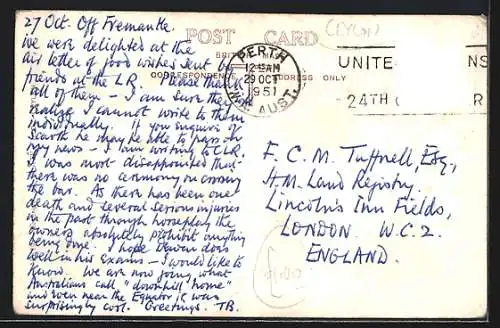 27 Oct. Off Fremantle.
We were delighted at the
air letter of good wishes sent by
friends at the L.R. Please thank
all of them – I am sure they
realize I cannot write to them
individually. If you enquire of
he may be able to pass on
my news – I am writing to CLR.
I was most disappointed that
there was no ceremony on crossing
the bar. As there has been one
death and several serious injuries
in the past through horseplay the
owners absolutely prohibit anything
being done. I hope does
well in his exams – I would like to
know. We are now going what
Australians call "downhill home"
and even near the Equator it was
surprisingly cool. Greetings. TB.
POST CARD
BRIT
CORRESPONDENCE ADDRESS ONLY
PERTH
12-15AM
29 OCT
1951
W. AUST.
(CEYLON)
UNITE NS
24TH R
F. C. M. Tuffnell, Esq.,
H.M. Land Registry,
Lincoln's Inn Fields,
LONDON. W.C.2.
ENGLAND.